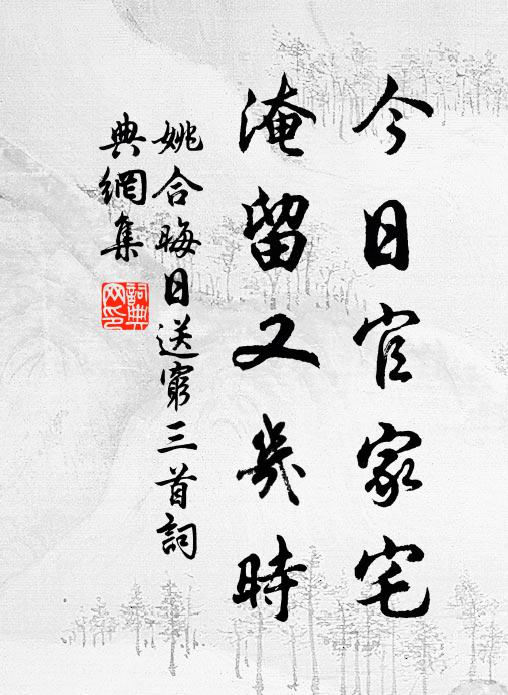 今日官家宅
淹留又幾時
姚合晦日送窮三首詞
典網集
詞典
网印